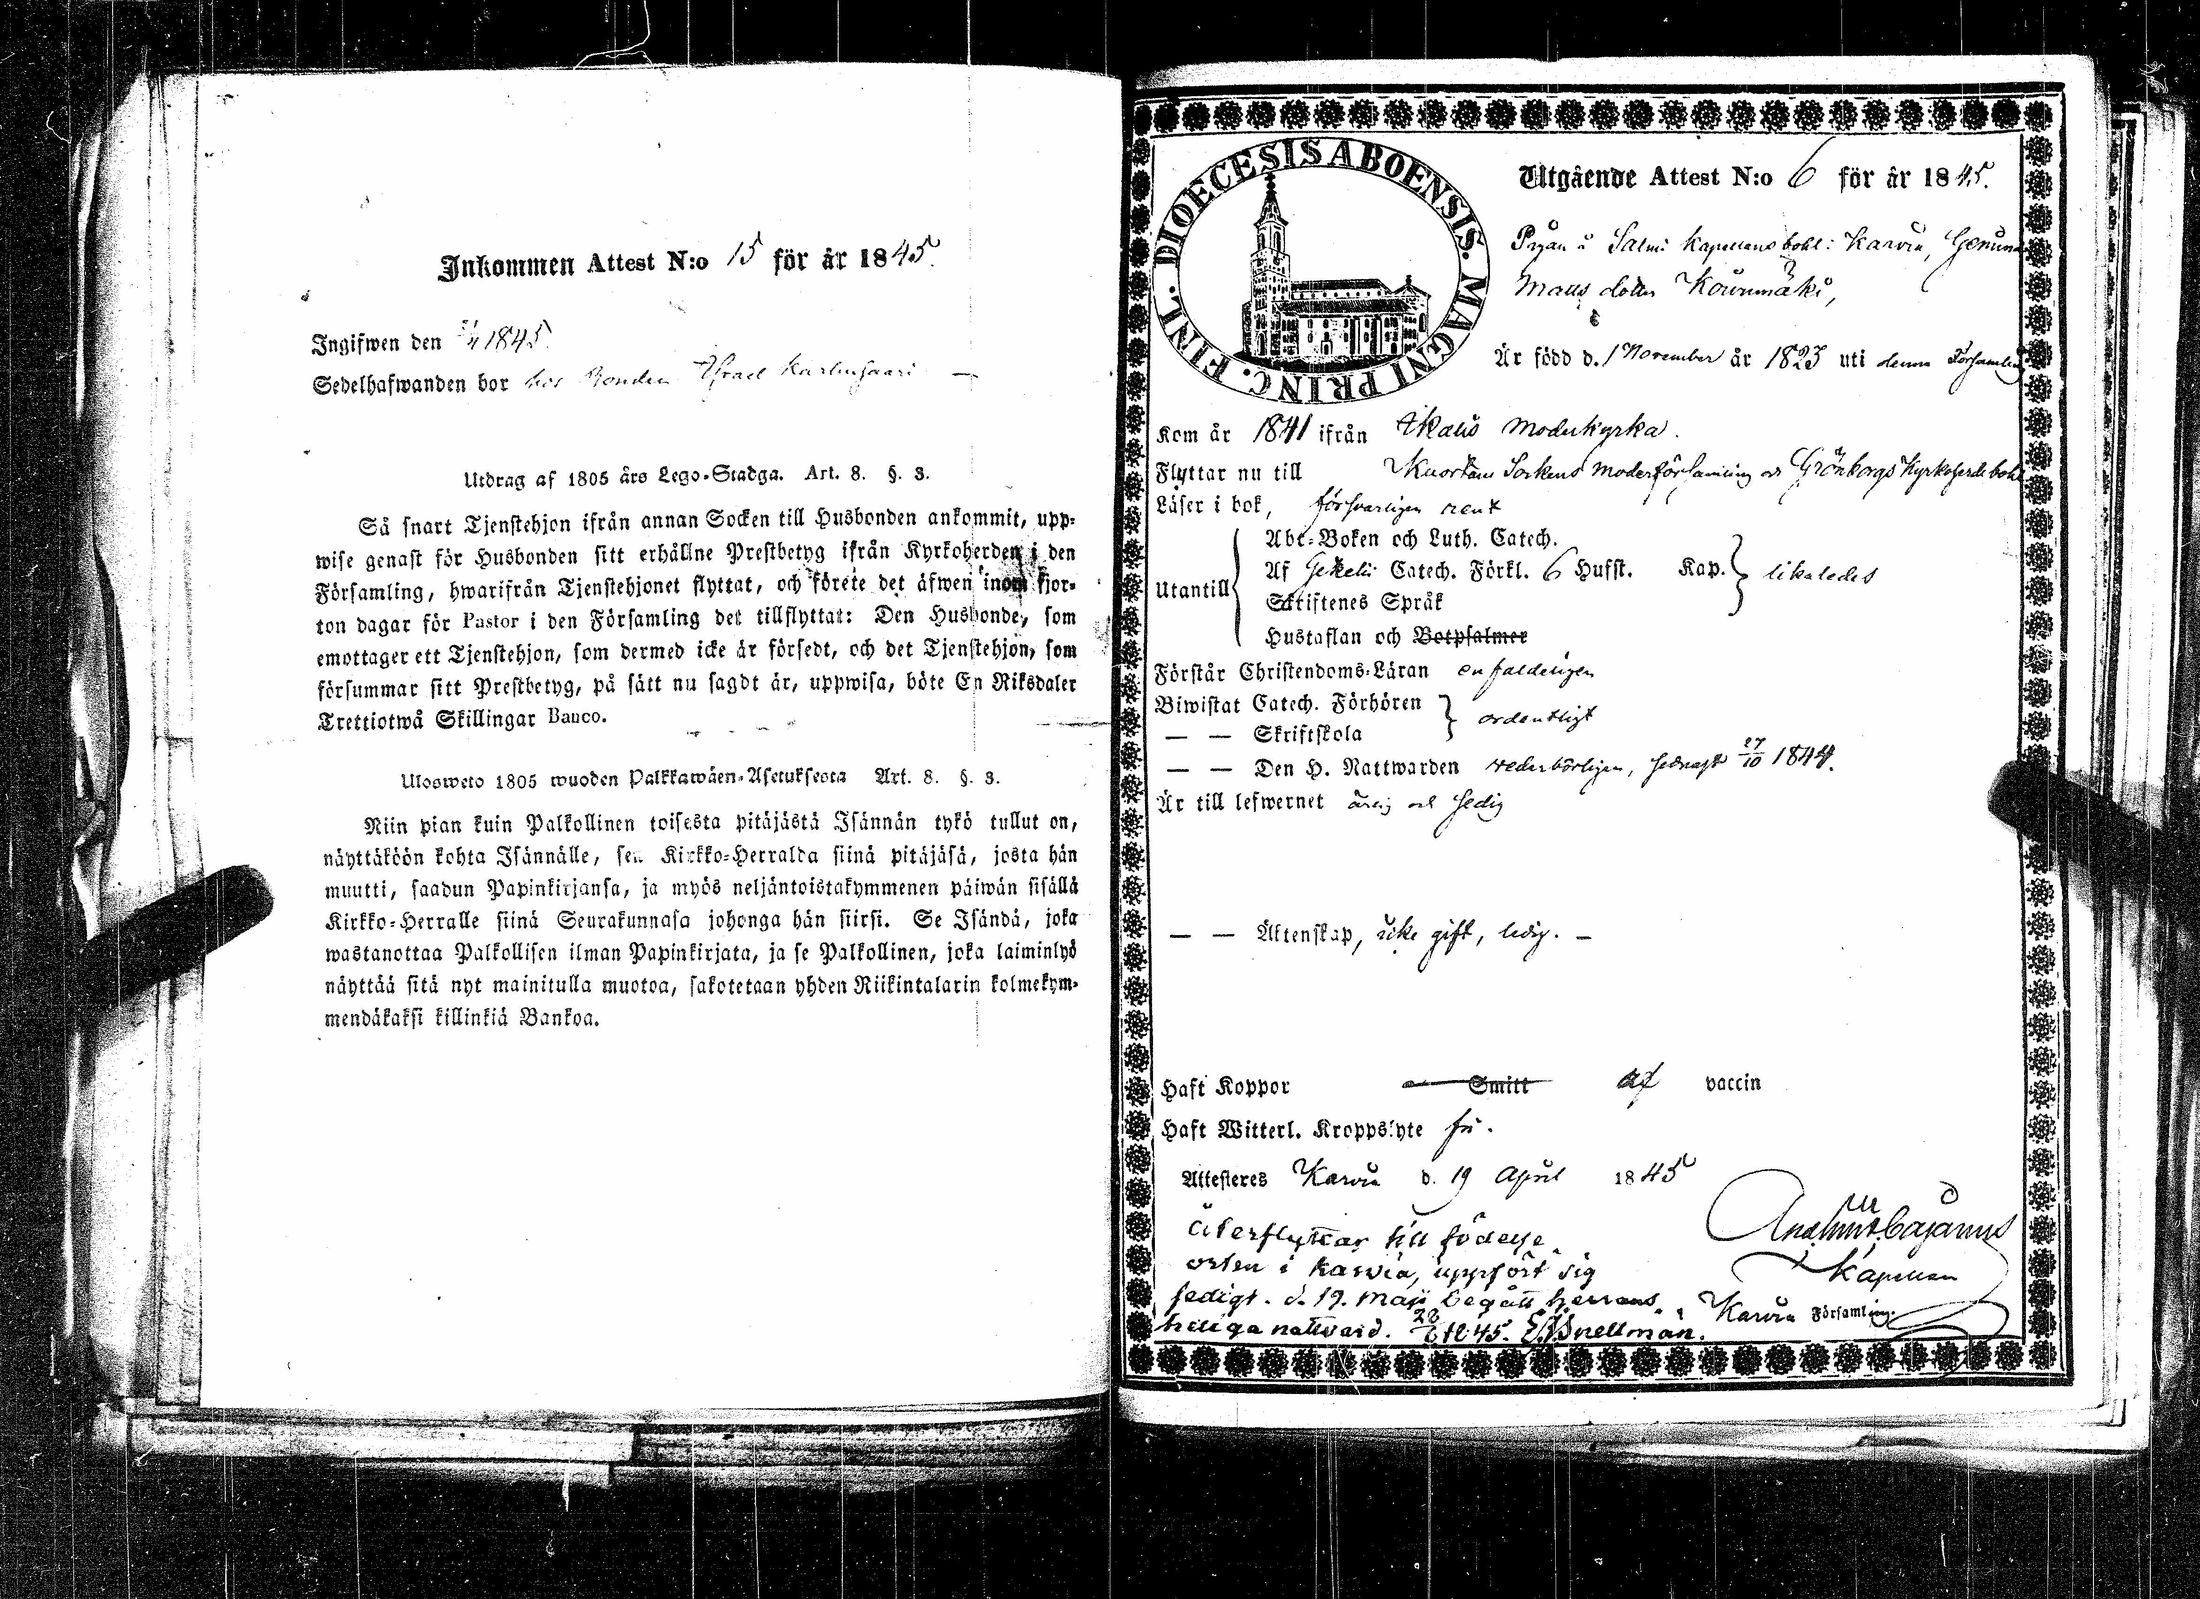 Inkommen Attest N:o 15 för år 1845.
Ingifwen den 1845.
Sedelhafwanden bor hos Bonden Israel
Utdrag af 1805 års Lego-Stadga. Art. 8. §. 3.
Så snart Tjenstehjon ifrån annan Socken till Husbonden ankommit, upp-
wise genast för Husbonden sitt erhållne Prestbetyg ifrån Kyrkoherden i den
Församling, hwarifrån Tjenstehjonet flyttat, och förete det äfwen inom fjor-
ton dagar för Pastor i den Församling det tillflyttat: Den Husbonde, som
emottager ett Tjenstehjon, som dermed icke är försedt, och det Tjenstehjon, som
försummar sitt Prestbetyg, på sätt nu sagdt är, uppwisa, böte En Riksdaler
Trettiotwå Skillingar Banco.
Ulosweto 1805 wuoden Palkkawäen-Asetuksesta Art. 8. §. 3.
Niin pian kuin Palkollinen toisesta pitäjästä Isännän tykö tullut on,
näyttäköön kohta Isännälle, sen Kirkko-Herralda siinä pitäjäsä, josta hän
muutti, saadun Papinkirjansa, ja myös neljäntoistakymmenen päiwän sisällä
Kirkko-Herralle siinä Seurakunnasa johonga hän siirsi. Se Isändä, joka
wastanottaa Palkollisen ilman Papinkirjata, ja se Palkollinen, joka laiminlyö
näyttää sitä nyt mainitulla muotoa, sakotetaan yhden Riikintalarin kolmekym-
mendäkaksi killinkiä Bankoa.
DIOECESIS ABOENSIS. MAGNI PRINC. FINL.
Utgående Attest N:o 6 för år 1845.
Pigan å Salmi Kapellans bohl i Karvia, Genuna
Matts dotter Kouvumäki,
Är född d. 1 November år 1823 uti denna Församling
Kom år 1841 ifrån Ikalis Moderkyrka.
Flyttar nu till Kuortane Sockens Moderförsamling och Grönborgs Kyrkoherde bohl
Läser i bok, försvarligen rent
Utantill
Abc-Boken och Luth. Catech.
Af Gezelii Catech. Förkl. 6 Hufst. Kap. likaledes
Skriftenes Språk
Hustaflan och Botpsalmer
Förstår Christendoms-Läran enfaldeligen
Biwistat Catech. Förhören ordentligt
— — Skriftskola
— — Den H. Nattwarden vederbörligen, sednast 27/10 1844.
Är till lefwernet ärlig och sedig
— — Äktenskap, icke gift, ledig. —
Haft Koppor Smitt af vaccin
Haft Witterl. Kroppslyte fri.
Attesteres Karvia d. 19 April 1845
Återflyttar till födelse
orten i Karvia, uppfört sig
sedigt. d. 19. Maji begått herrans
heliga nattvard. 1845. Snellman.
Cajanus
Kapellan
Karvia Församling.